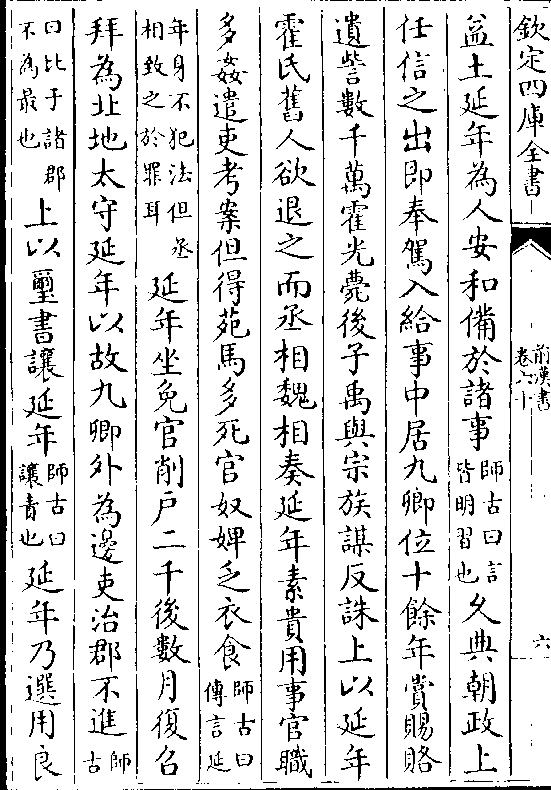 欽定四庫全書
前漢書
卷六十
六
益土延年為人安和備於諸事師古曰言皆明習也久典朝政上
任信之出即奉駕入給事中居九卿位十餘年賞賜賂
遺訾數千萬霍光薨後子禹與宗族謀反誅上以延年
霍氏舊人欲退之而丞相魏相奏延年素貴用事官職
多姦遣吏考案但得苑馬多死官奴婢乏衣食師古曰傳言延
年身不犯法但丞相致之於罪耳延年坐免官削戸二千後數月復召
拜為北地太守延年以故九卿外為邊吏治郡不進師古
曰比于諸郡不為最也上以璽書讓延年師古曰讓責也延年乃選用良